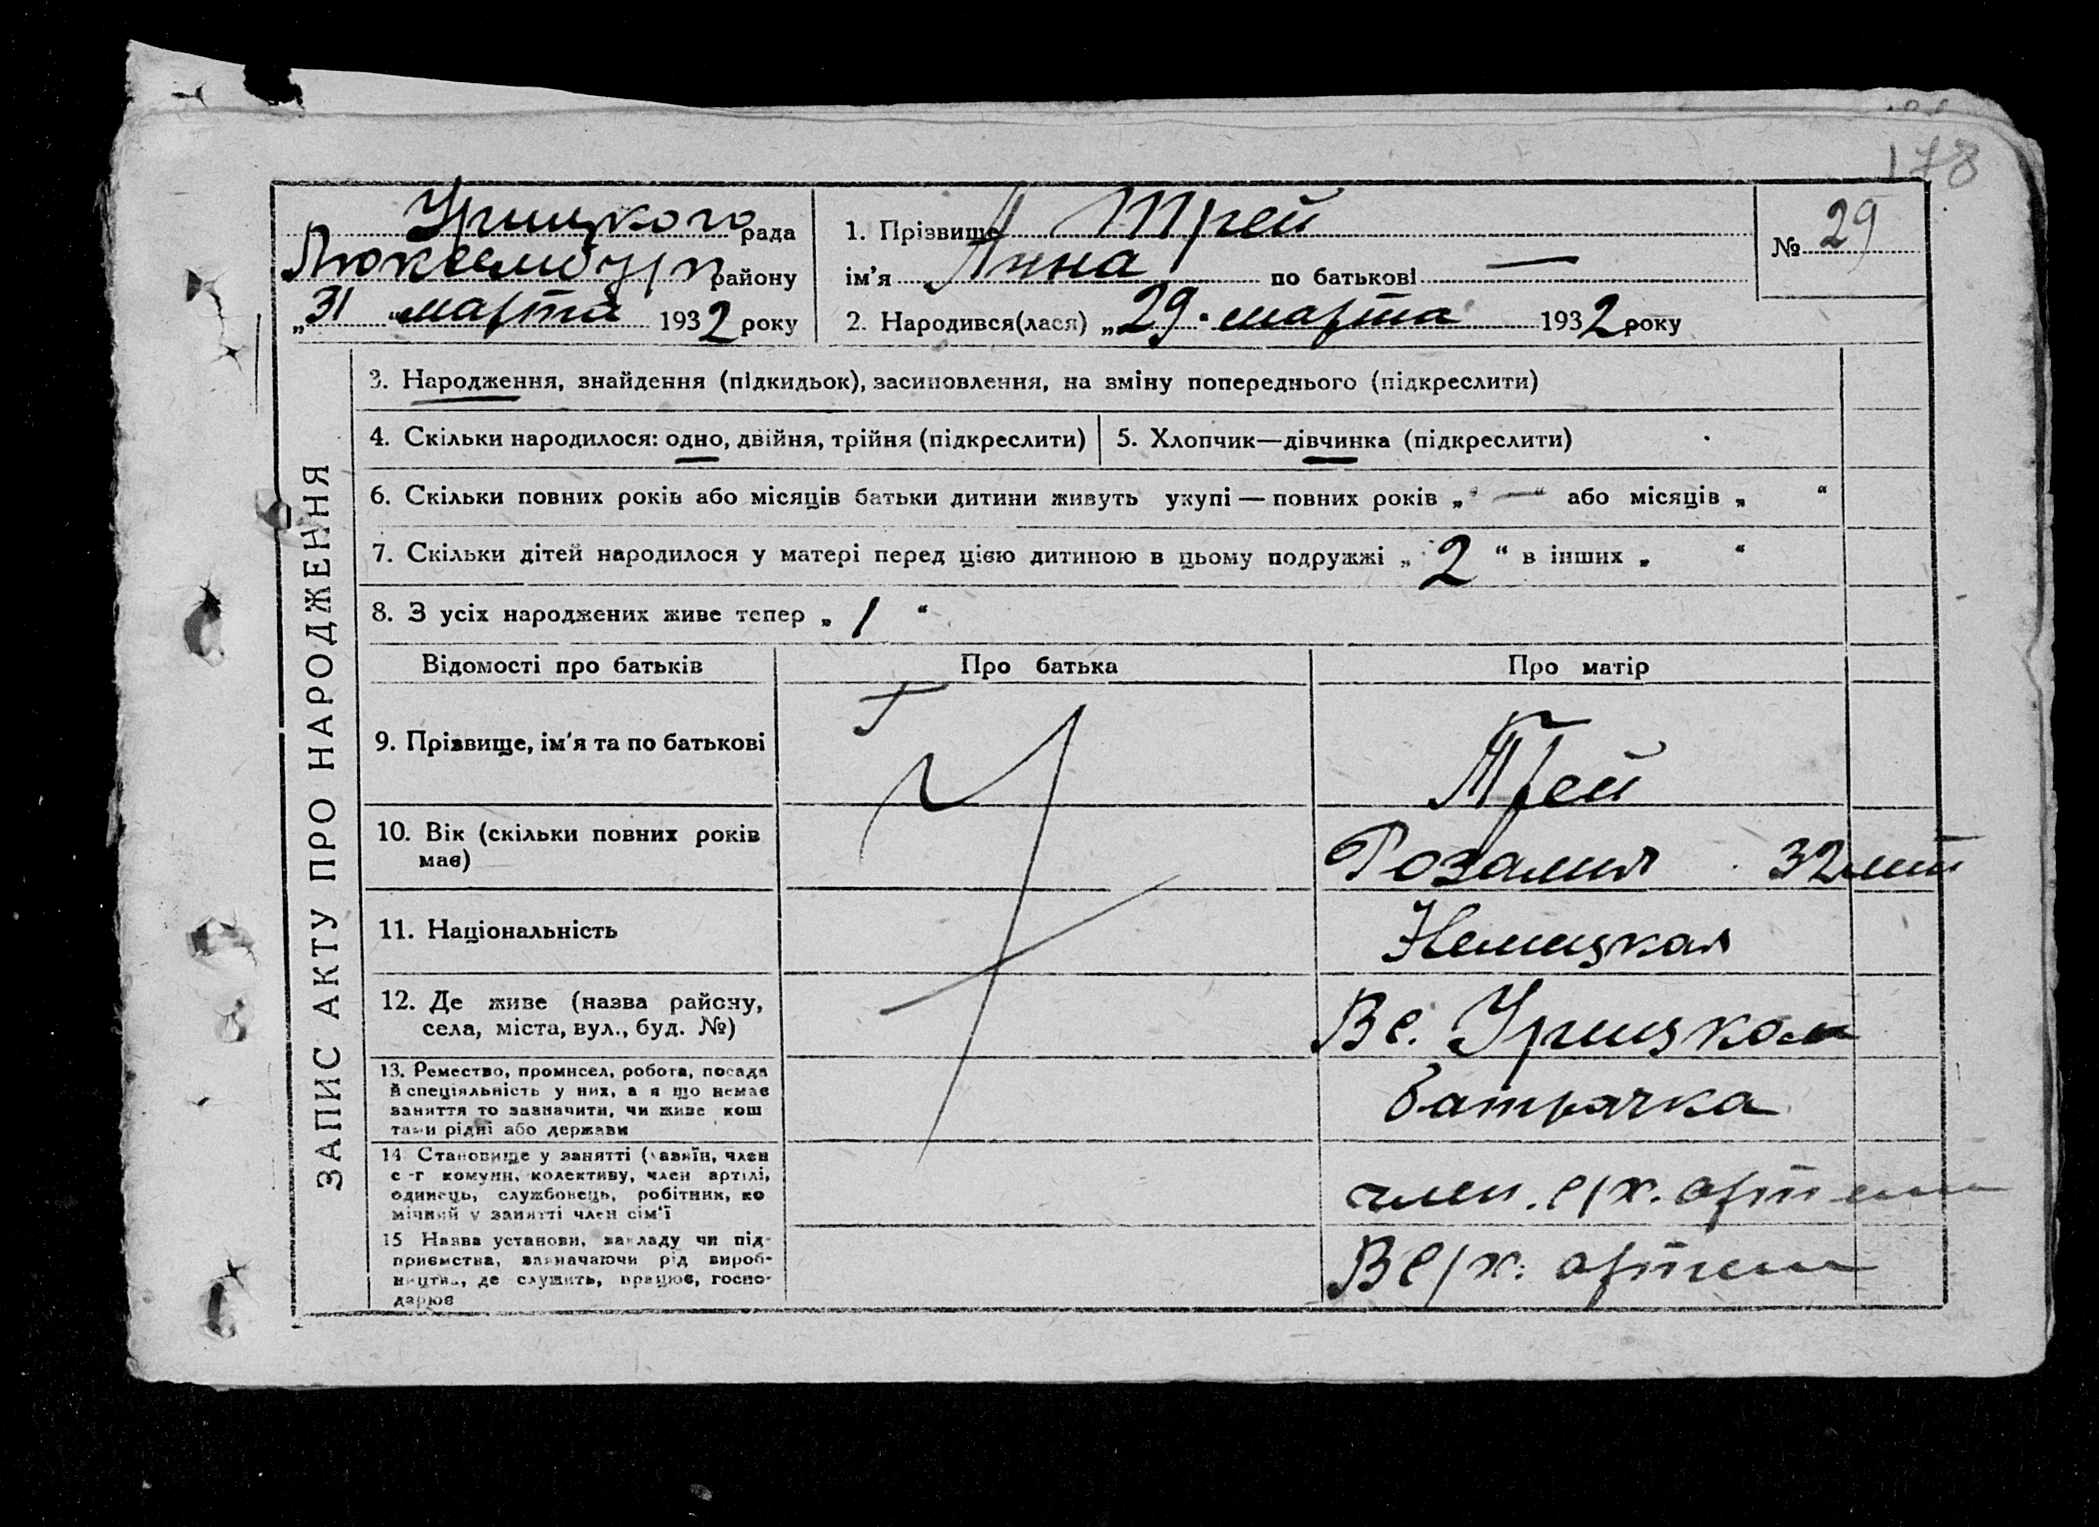 178
Урицкого рада
Люксембург району
„31“ марта 1932 року
1. Прізвище Трей
ім’я Анна по батькові —
2. Народився(лася) „29“ марта 1932 року
№ 29
ЗАПИС АКТУ ПРО НАРОДЖЕННЯ
3. Народження, знайдення (підкидьок), засиновлення, на зміну попереднього (підкреслити)
4. Скільки народилося: одно, двійня, трійня (підкреслити)
5. Хлопчик—дівчинка (підкреслити)
6. Скільки повних років або місяців батьки дитини живуть укупі — повних років „—“ або місяців „ “
7. Скільки дітей народилося у матері перед цією дитиною в цьому подружжі „2“ в інших „ “
8. З усіх народжених живе тепер „1“
Відомості про батьків
Про батька
Про матір
9. Прізвище, ім’я та по батькові
Трей
10. Вік (скільки повних років
має)
Розалия 32 лет
11. Національність
Немецкая
12. Де живе (назва району,
села, міста, вул., буд. №)
В с. Урицком
13. Ремество, промисел, робота, посада
й спеціяльність у них, а я що немає
заняття то зазначити, чи живе кош
тами рідні або держави
батрачка
14 Становище у занятті (хазяїн, член
с-г комуни, колективу, член артілі,
одинець, службовець, робітник, по
мічний у занятті член сім’ї
член. с/х. артели
15 Назва установи, закладу чи під-
приємства, зазначаючи рід вироб-
ництва, де служить, працює, госпо-
дарює
В с/х. артели